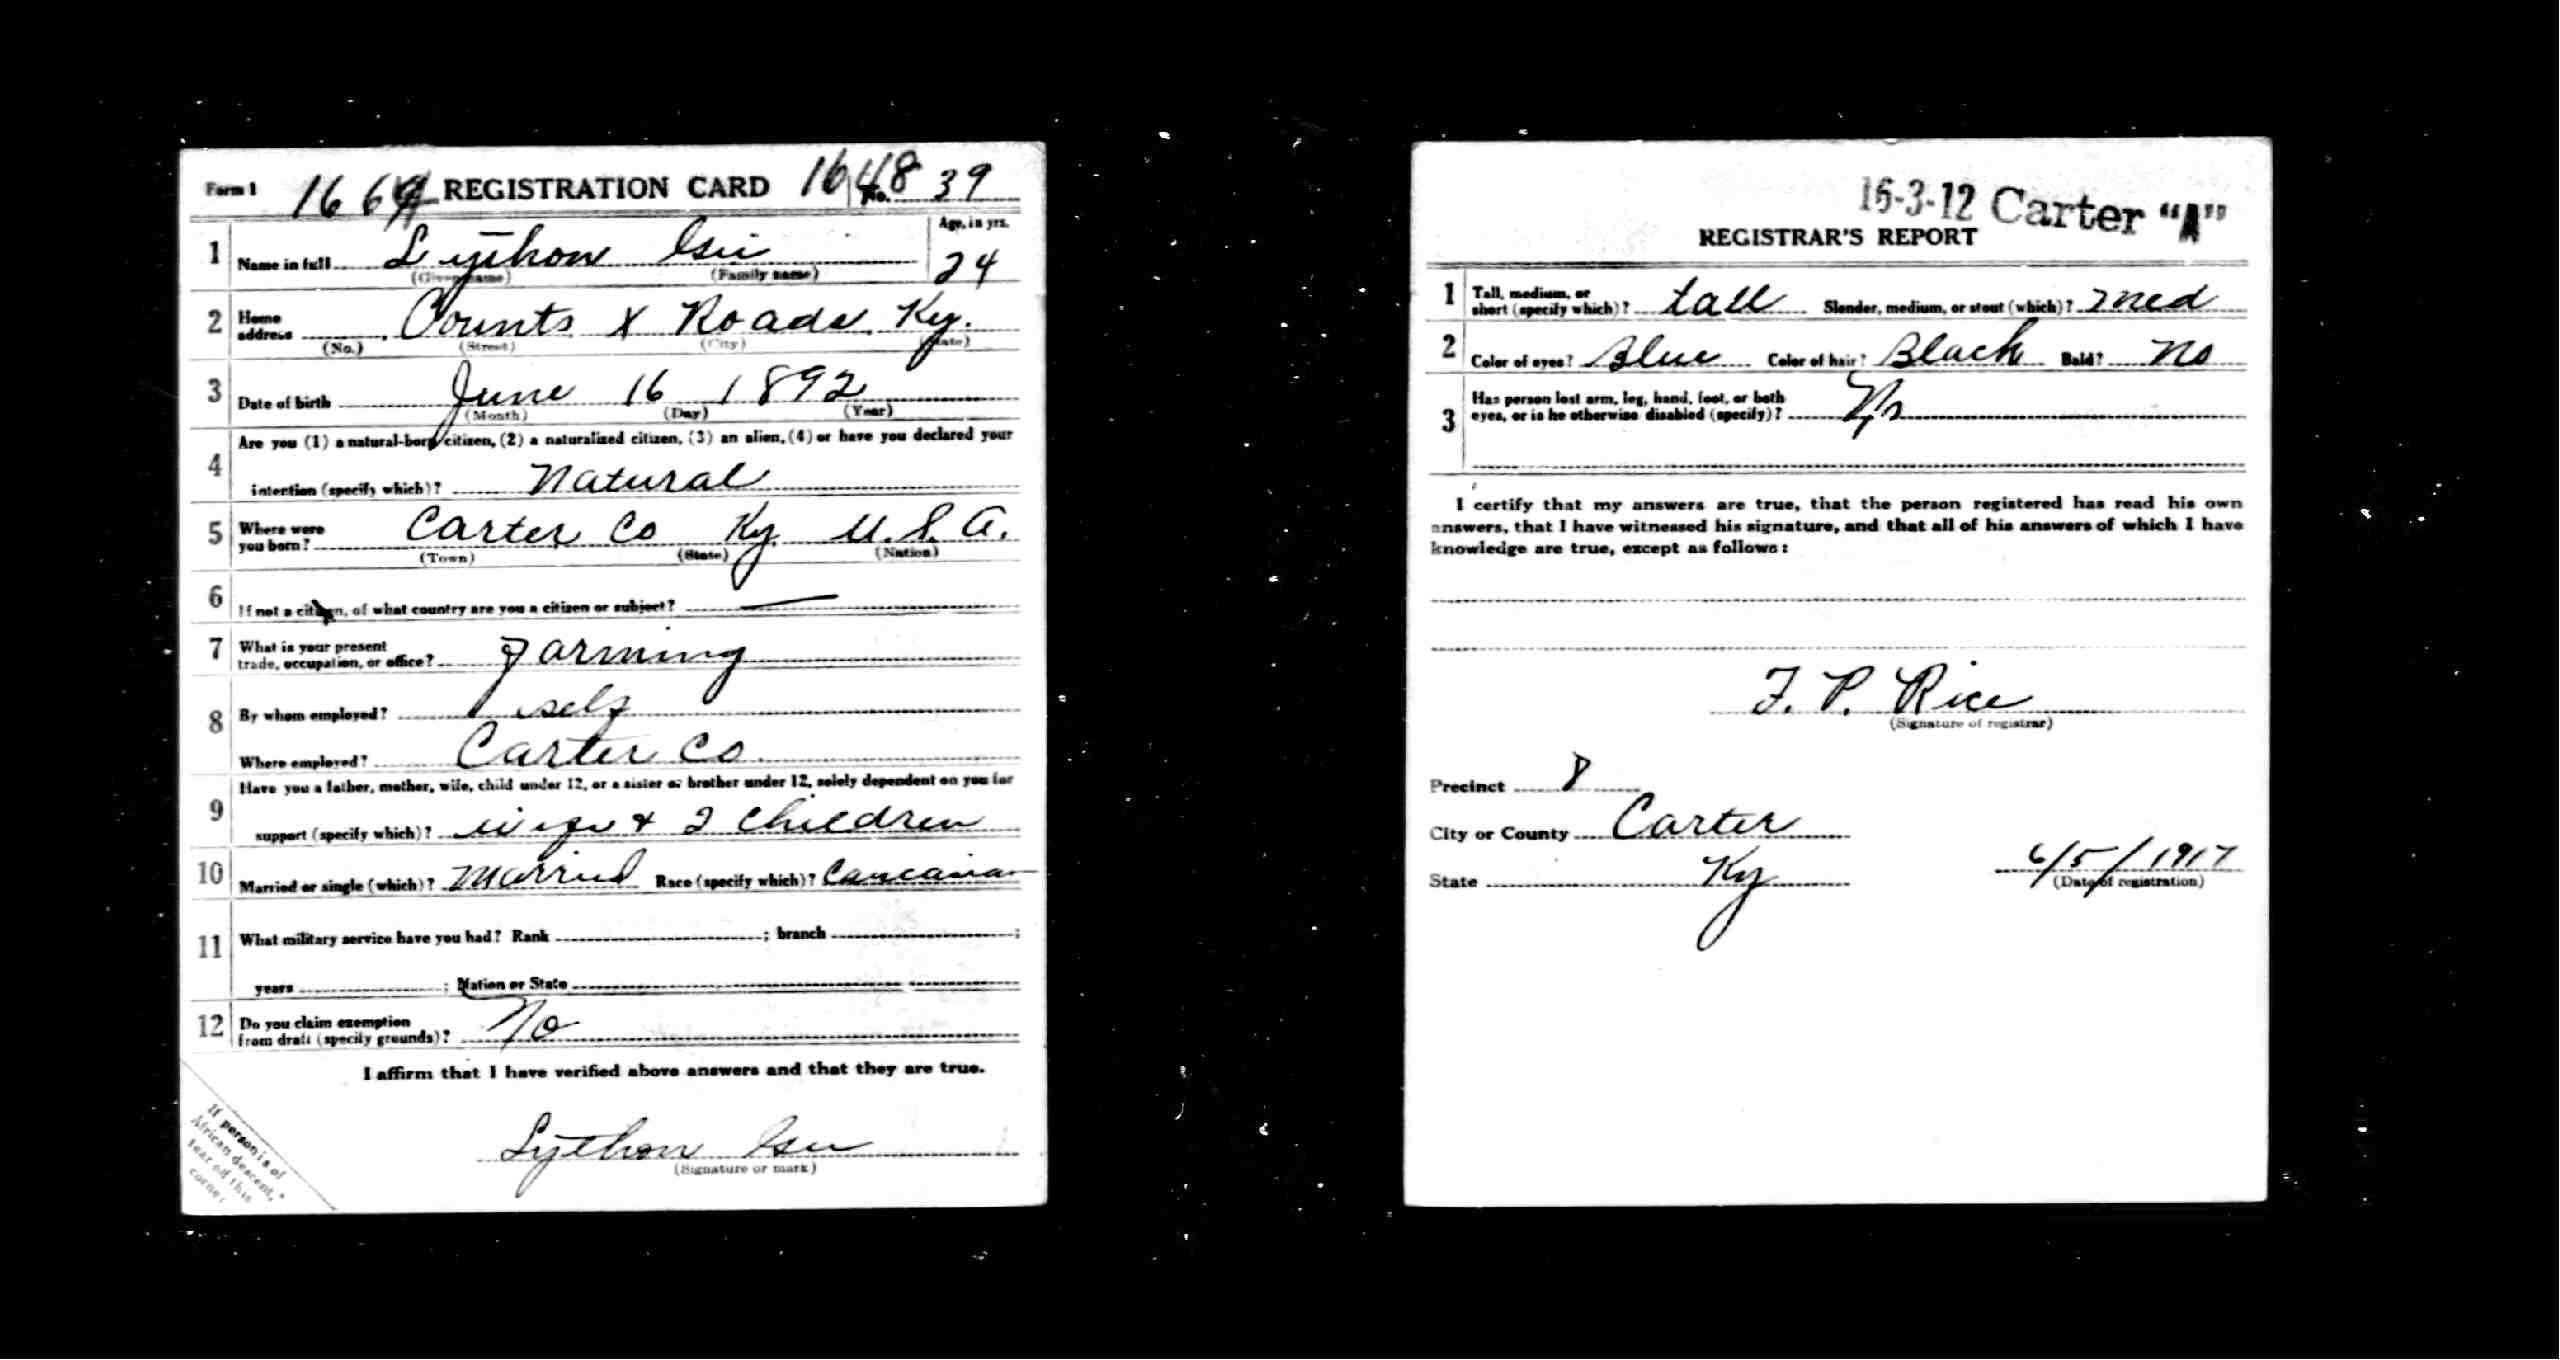 Form 1 REGISTRATION CARD 1648 No. 39
1 Name in full Lython
(Given name) (Family name)
Age, in yrs.
24
2 Home address Counts X Roads Ky.
(No.) (Street) (City) (State)
3 Date of birth June 16 1892
(Month) (Day) (Year)
4 Are you (1) a natural-born citizen, (2) a naturalized citizen, (3) an alien, (4) or have you declared your
intention (specify which)? Natural
5 Where were you born? Carter Co Ky U.S.A.
(Town) (State) (Nation)
6 If not a citizen, of what country are you a citizen or subject? —
7 What is your present trade, occupation, or office? Farming
8 By whom employed? self
Where employed? Carter Co
9 Have you a father, mother, wife, child under 12, or a sister or brother under 12, solely dependent on you for
support (specify which)? wife & 2 children
10 Married or single (which)? Married Race (specify which)? Caucasian
11 What military service have you had? Rank ; branch ;
years ; Nation or State
12 Do you claim exemption from draft (specify grounds)? No
I affirm that I have verified above answers and that they are true.
Lython
(Signature or mark)
If person is of
African descent,
tear off this
corner
16-3-12 Carter "A"
REGISTRAR'S REPORT
1 Tall, medium, or short (specify which)? tall Slender, medium, or stout (which)? Med
2 Color of eyes? Blue Color of hair? Black Bald? No
3 Has person lost arm, leg, hand, foot, or both
eyes, or is he otherwise disabled (specify)? No
I certify that my answers are true, that the person registered has read his own
answers, that I have witnessed his signature, and that all of his answers of which I have
knowledge are true, except as follows:
F. P. Rice
(Signature of registrar)
Precinct 8
City or County Carter
State Ky
6/5/1917
(Date of registration)